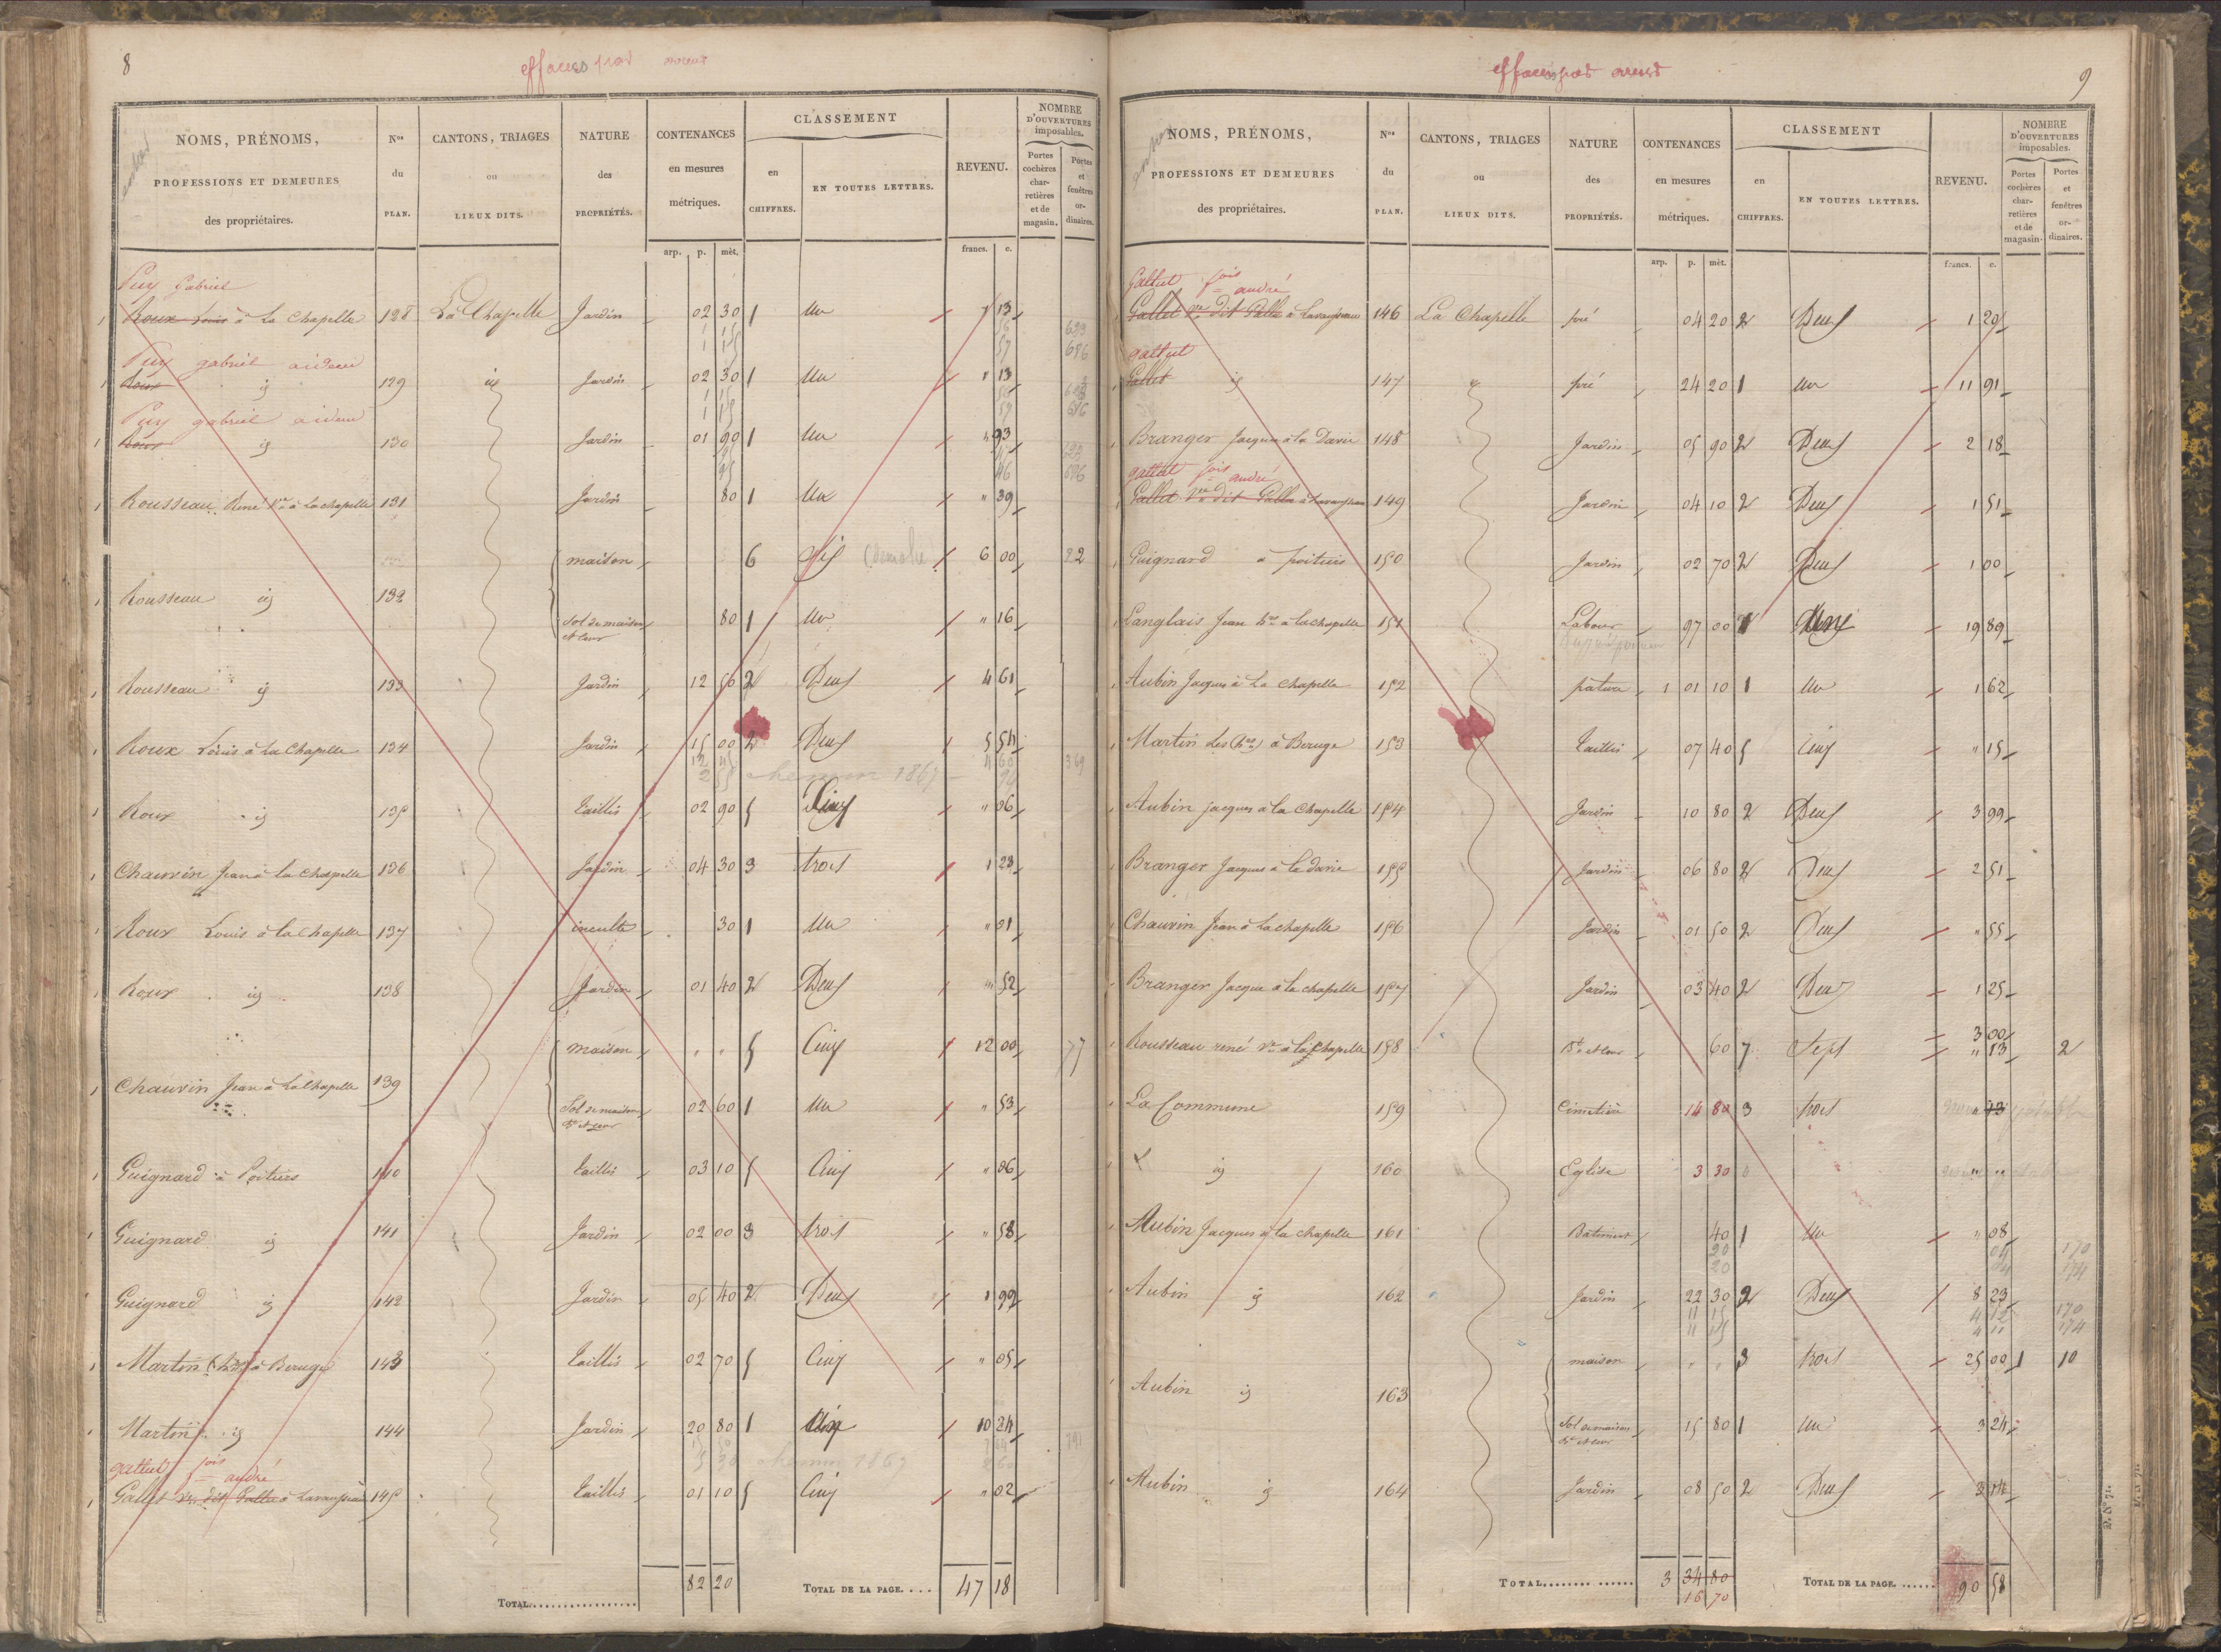 8
effacées par erreur
NOMS, PRÉNOMS, PROFESSIONS ET DEMEURES des propriétaires.
Nos du PLAN.
CANTONS, TRIAGES ou LIEUX DITS.
NATURE des PROPRIÉTÉS.
CONTENANCES en mesures métriques.
CLASSEMENT
en CHIFFRES.
EN TOUTES LETTRES.
REVENU.
NOMBRE D'OUVERTURES imposables.
Portes cochères charretières et de magasin.
Portes et fenêtres ordinaires.
arp. p. mèt. francs. c.
Puy Gabriel
Roux Louis à La Chapelle 128 La Chapelle Jardin 02 30 1 Un " 13
Puy gabriel
Roux id 129 id Jardin 02 30 1 Un 1 13
Puy gabriel
Roux id 130 Jardin 01 90 1 Un " 93
Rousseau René Ve à La chapelle 131 Jardin 80 1 Un " 39
maison 6 Six 6 00 22
Rousseau id 132
Sol de maison et cour 80 1 Un " 16
Rousseau id 133 Jardin 12 50 2 Deux 4 61
Roux Louis à La Chapelle 134 Jardin 15 00 2 Deux 5 54
12 45 4 60 369
2 55 chemin 1867 94
Roux id 135 Taillis 02 90 5 Cinq " 06
Chauvin Jean à La Chapelle 136 Jardin 04 30 3 trois 1 23
Roux Louis à La Chapelle 137 inculte 30 1 Un " 01
Roux id 138 Jardin 01 40 2 Deux " 52
maison " " 5 Cinq 12 00 77
Chauvin Jean à La Chapelle 139
Sol de maison Bt et cour 02 60 1 Un " 53
Guignard à Poitiers 140 Taillis 03 10 5 Cinq " 06
Guignard id 141 Jardin 02 00 3 trois " 58
Guignard id 142 Jardin 05 40 2 Deux 1 99
Martin (hrs) à Beruge 143 Taillis 02 70 5 Cinq " 05
Martin id 144 Jardin 20 80 1 Un 10 24
chemin 1867
gattut fois andré
Gallet Ve dit Gallet à Lavausseau 145 Taillis 01 10 5 Cinq " 02
TOTAL 82 20 TOTAL DE LA PAGE.... 47 18
effacées par erreur
9
NOMS, PRÉNOMS, PROFESSIONS ET DEMEURES des propriétaires.
Nos du PLAN.
CANTONS, TRIAGES ou LIEUX DITS.
NATURE des PROPRIÉTÉS.
CONTENANCES en mesures métriques.
CLASSEMENT
en CHIFFRES.
EN TOUTES LETTRES.
REVENU.
NOMBRE D'OUVERTURES imposables.
Portes cochères charretières et de magasin.
Portes et fenêtres ordinaires.
arp. p. mèt. francs. c.
Gattut fois andré
Gallet Ve dit Gallet à Lavausseau 146 La Chapelle pré 04 20 2 Deux 1 29
gattut
Gallet id 147 id pré 24 20 1 Un 11 91
Branger Jacques à la Davie 148 Jardin 05 90 2 Deux 2 18
gattut fois andré
Gallet Ve dit Gallet à Lavausseau 149 Jardin 04 10 2 Deux 1 51
Guignard à poitiers 150 Jardin 02 70 2 Deux 1 00
Langlais Jean hrs à La chapelle 151 Labour 97 00 1 Une 19 89
Aubin Jacques à La Chapelle 152 pature 1 01 10 1 Un 1 62
Martin Les (hrs) à Beruge 153 Taillis 07 40 5 Cinq " 15
Aubin jacques à La Chapelle 154 Jardin 10 80 2 Deux 3 99
Branger Jacques à la Davie 155 Jardin 06 80 2 Deux 2 51
Chauvin Jean à La chapelle 156 Jardin 01 50 2 Deux " 55
Branger Jacque à la chapelle 157 Jardin 03 40 2 Deux 1 25
Rousseau rené Ve à La Chapelle 158 Bt et cour 60 7 Sept 3 00 2
" 13
La Commune 159 Cimetière 14 80 3 trois
id 160 Eglise 3 30 " "
Aubin Jacques à la chapelle 161 Bâtiment 40 1 Un " 08
20 04 170
20 04 174
Aubin id 162 Jardin 22 30 2 Deux 8 23
11 15 4 12 170
11 15 4 11 174
maison " " 3 trois 25 00 1 10
Aubin id 163
Sol de maison Bt et cour 15 80 1 Un 3 24
Aubin id 164 Jardin 08 50 2 Deux 3 14
TOTAL 3 34 80 TOTAL DE LA PAGE. 90 58
16 70
D. N° 72.